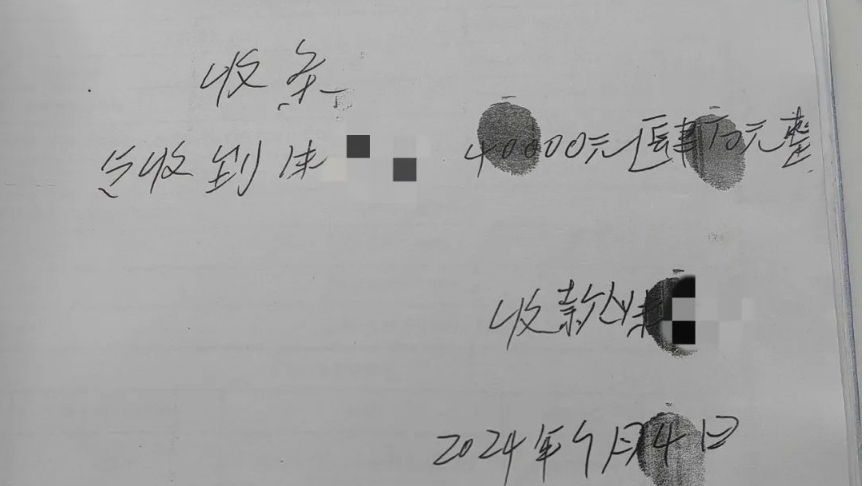 收条
今收到 40000元(肆万元整
收款人
2024年9月4日